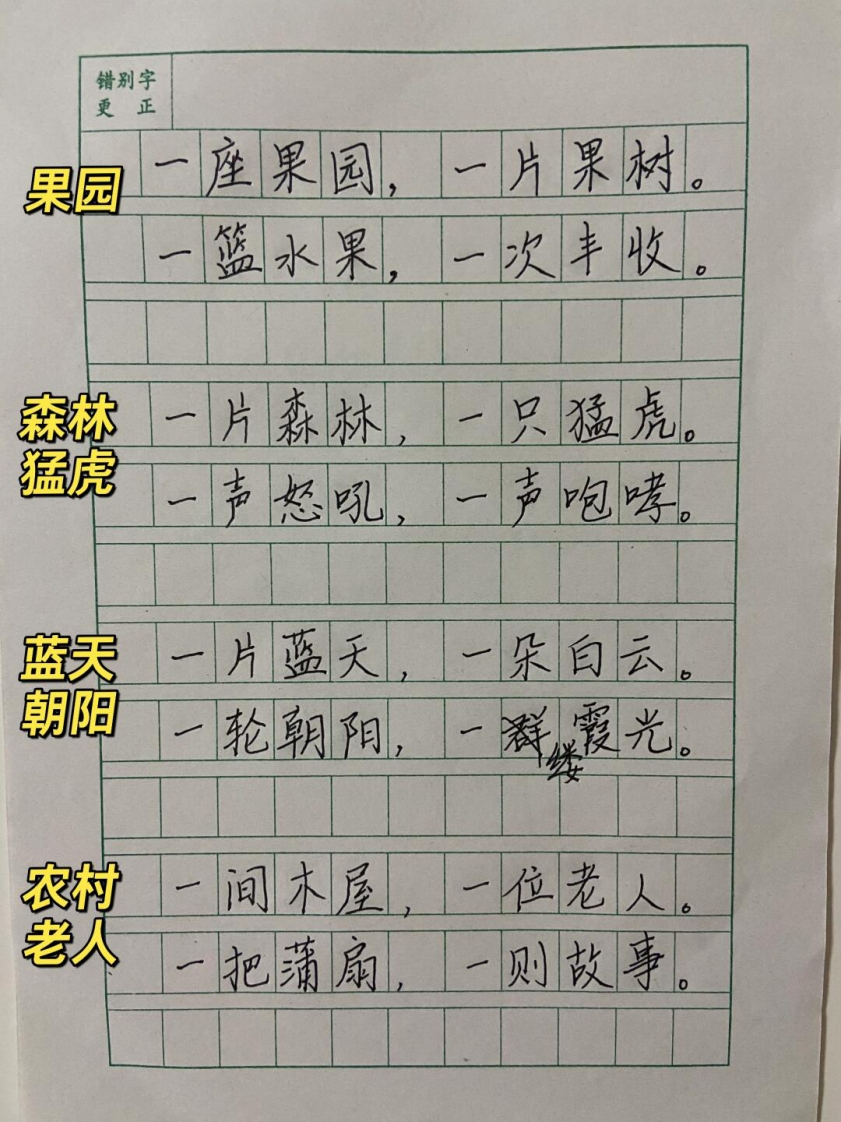 错别字
更 正
果园
一座果园，一片果树。
一篮水果，一次丰收。
森林
猛虎
一片森林，一只猛虎。
一声怒吼，一声咆哮。
蓝天
朝阳
一片蓝天，一朵白云。
一轮朝阳，一缕霞光。
农村
老人
一间木屋，一位老人。
一把蒲扇，一则故事。